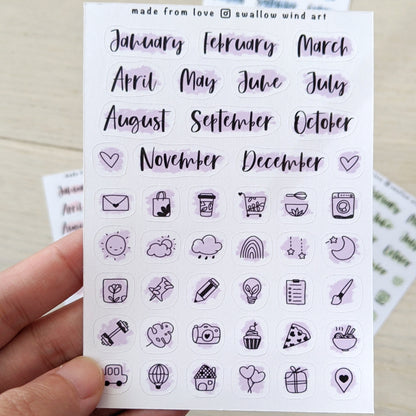 made from love swallow wind art
January February March
April May June July
August September October
November December
January
April